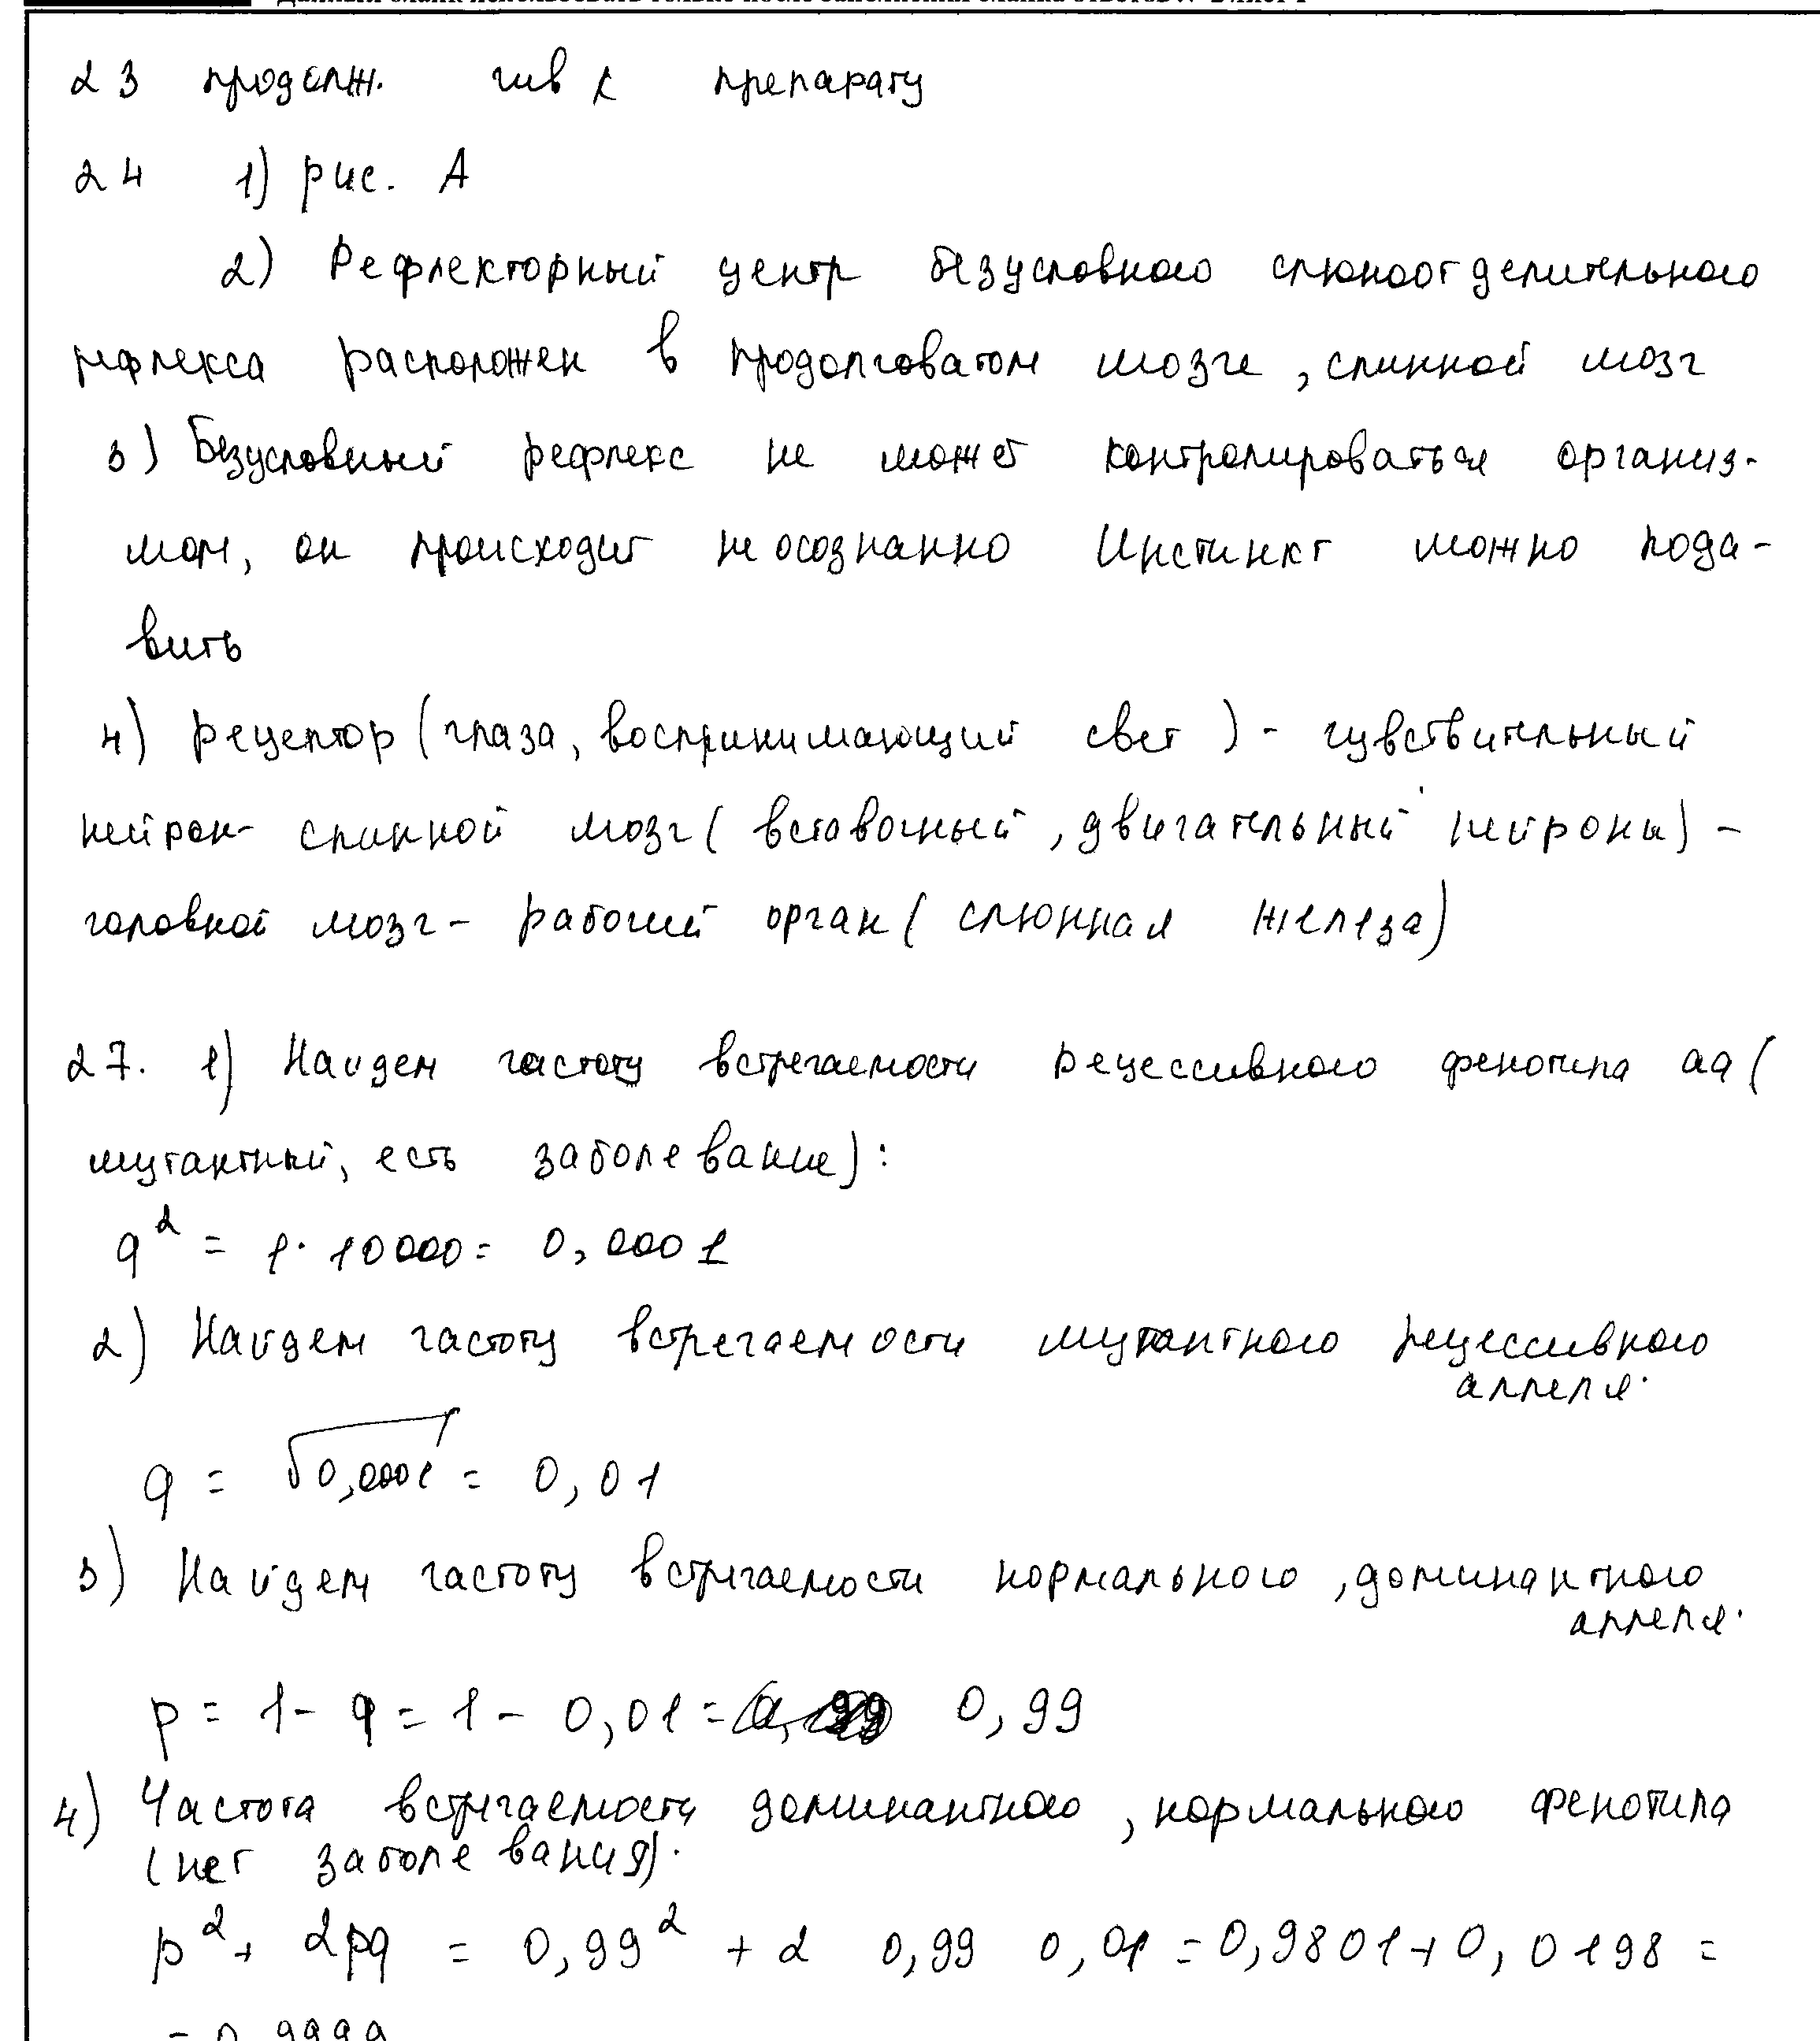 23 продолж. чив к препарату
24 1) рис. А
2) Рефлекторный центр безусловного слюноотделительного
рефлекса расположен в продолговатом мозге, спинной мозг
3) Безусловный рефлекс не может контролироваться организ-
мом, он происходит неосознанно Инстинкт можно пода-
вить
4) рецептор (глаза, воспринимающий свет) - чувствительный
нейрон- спинной мозг (вставочный, двигательный нейроны) -
головной мозг - рабочий орган (слюнная железа)
27. 1) Найдем частоту встречаемости рецессивного фенотипа аа (
мутантный, есть заболевание):
q² = 1 · 10000 = 0,0001
2) Найдем частоту встречаемости мутантного рецессивного
аллеля.
q = √0,0001 = 0,01
3) Найдем частоту встречаемости нормального, доминантного
аллеля.
p = 1 - q = 1 - 0,01 = 0,99
4) Частота встречаемости доминантного, нормального фенотипа
(нет заболевания).
p² + 2pq = 0,99² + 2 0,99 0,01 = 0,9801 + 0,0198 =
= 0,9999